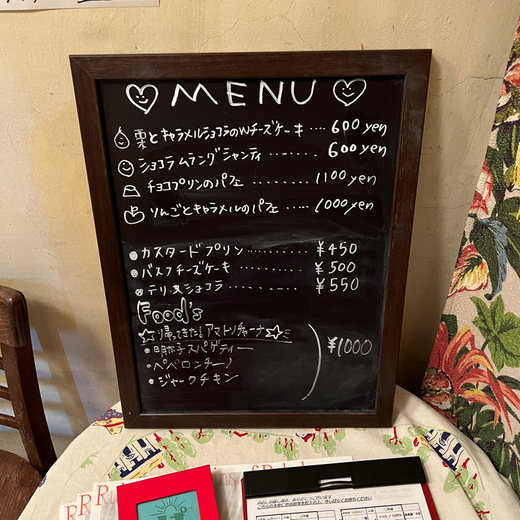 MENU
栗とキャラメルショコラのWチーズケーキ .... 600 yen
ショコラムラングシャンティ ........ 600 yen
チョコプリンのパフェ ........ 1100 yen
りんごとキャラメルのパフェ .... 1000 yen
カスタードプリン ........ ¥450
バスクチーズケーキ ........ ¥500
テリーヌショコラ ........ ¥550
Food's
☆帰ってきた!アマトリチャーナ☆
・明太子スパゲティー ¥1000
・ペペロンチーノ
・ジャークチキン
RR